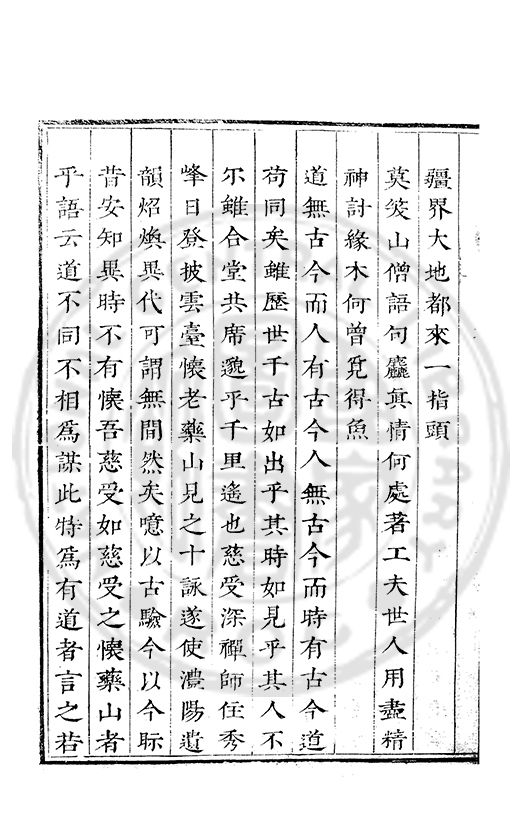 疆界大地都來一指頭
莫笑山僧語句麤真情何處著工夫世人用盡精
神討緣木何曾覓得魚
道無古今而人有古今人無古今而時有古今道
苟同矣雖歷世千古如出乎其時如見乎其人不
尔雖合堂共席邈乎千里遙也慈受深禪師住秀
峰日登披雲臺懷老藥山見之十詠遂使澧陽遺
韻炤煥異代可謂無間然矣噫以古驗今以今眎
昔安知異時不有懷吾慈受如慈受之懷藥山者
乎語云道不同不相為謀此特為有道者言之若